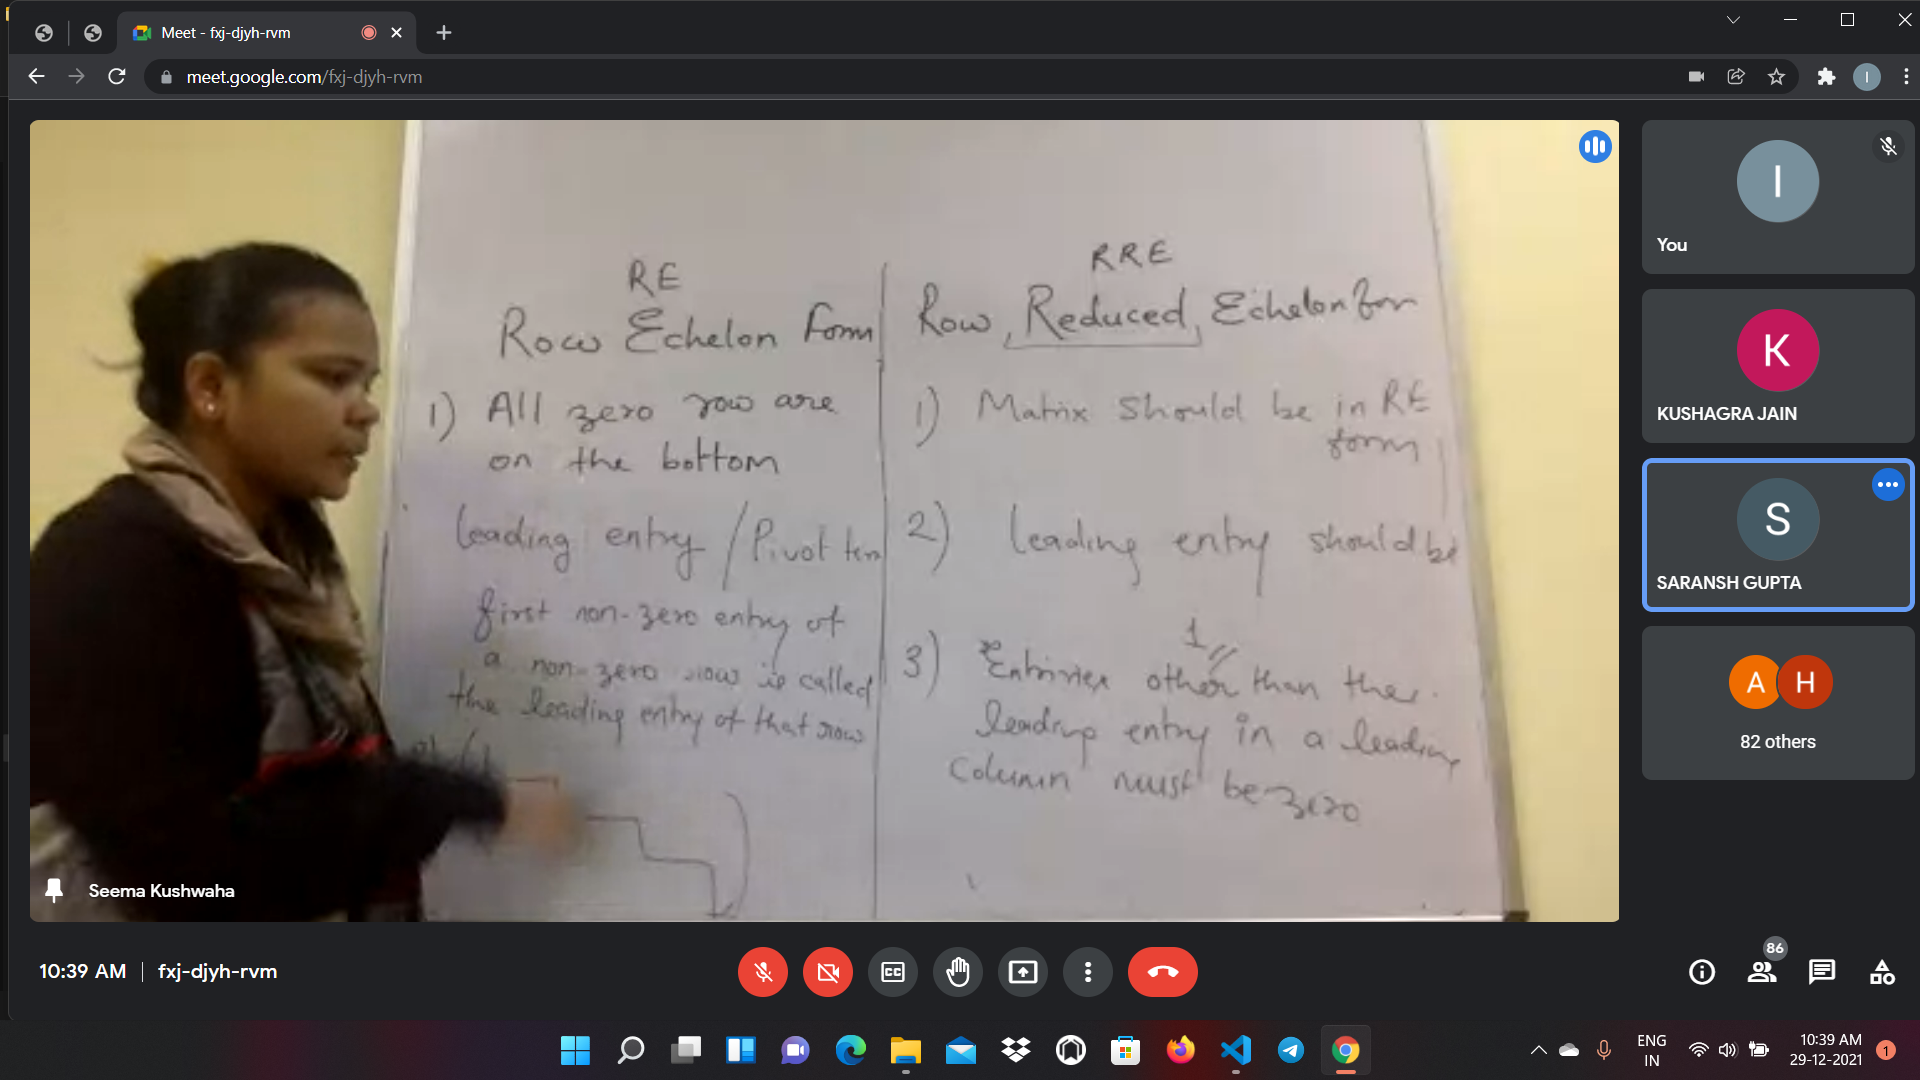 Meet - fxj-djyh-rvm
meet.google.com/fxj-djyh-rvm
I
RE
Row Echelon Form
1) All zero row are
on the bottom
leading entry / Pivot
first non-zero entry of
a non-zero row is called
the leading entry of that row
RRE
Row Reduced Echelon form
1) Matrix should be in RE
form
2) leading entry should be
1
3) Entries other than the
leading entry in a leading
column must be zero
Seema Kushwaha
I
You
K
KUSHAGRA JAIN
S
SARANSH GUPTA
A H
82 others
10:39 AM | fxj-djyh-rvm
CC
86
ENG
IN
10:39 AM
29-12-2021
1